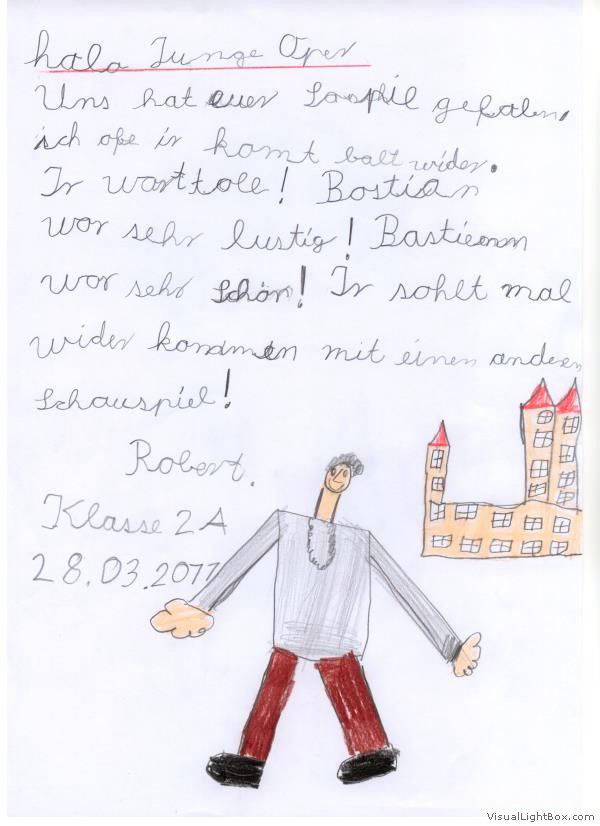 hala Junge Oper
Uns hat euer Saspil gefalen.
ich ofe ir komt balt wider.
Ir wart tole! Bostian
wor sehr lustig! Bastienn
wor sehr schön! Ir sohlt mal
wider kommen mit einen anderen
Schauspiel!
Robert.
Klasse 2A
28.03.2011
VisualLightBox.com